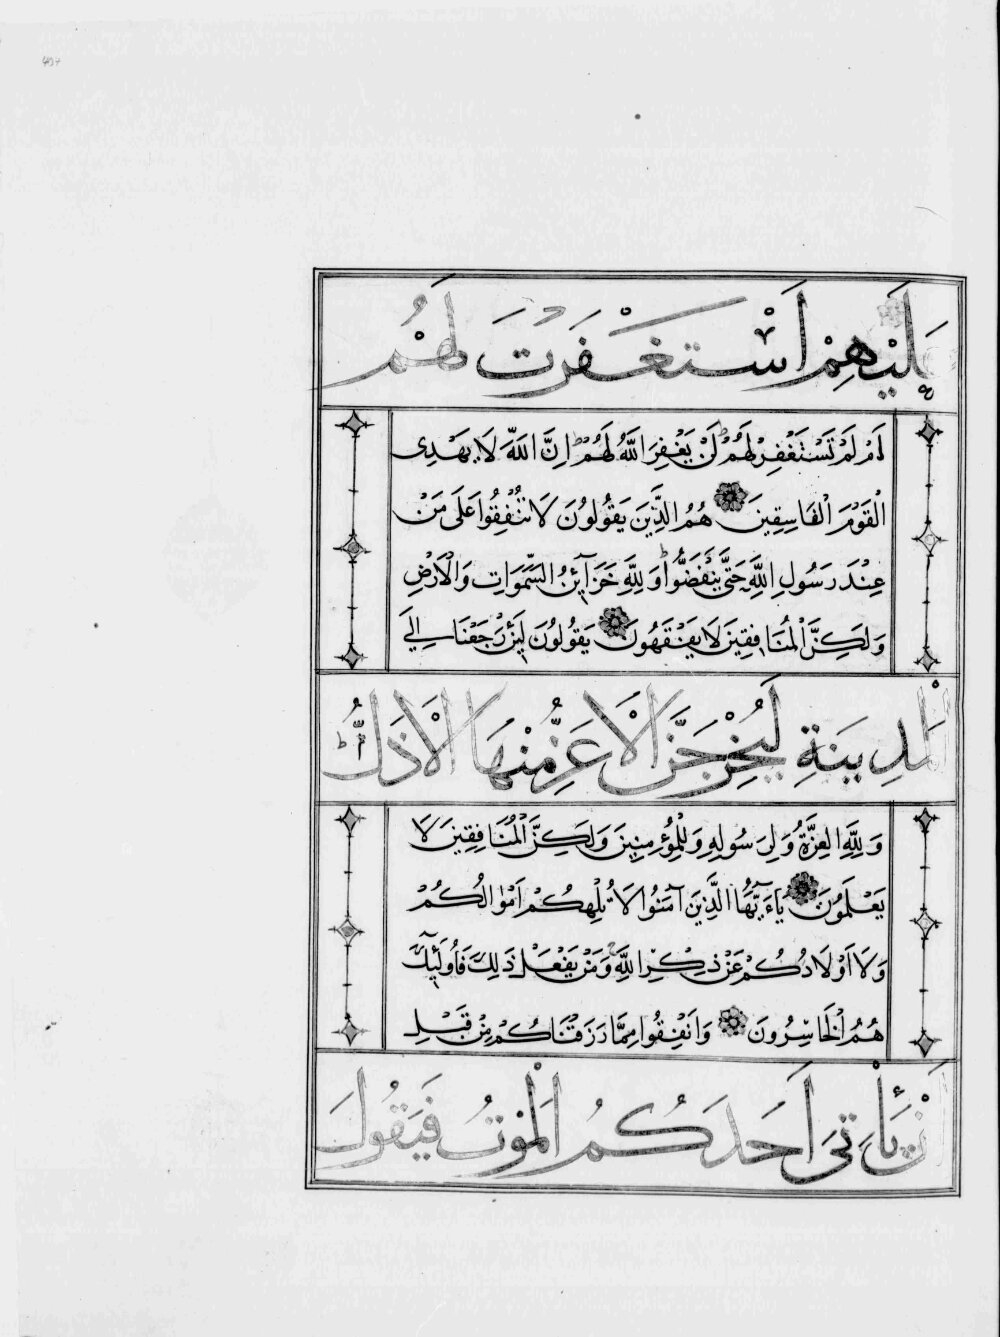 عَلَيْهِمْ اَسْتَغْفَرْتَ لَهُمْ
اَمْ لَمْ تَسْتَغْفِرْ لَهُمْ لَنْ يَغْفِرَ اللّٰهُ لَهُمْ اِنَّ اللّٰهَ لَا يَهْدِى
الْقَوْمَ الْفَاسِقِينَ هُمُ الَّذِينَ يَقُولُونَ لَا تُنْفِقُوا عَلَى مَنْ
عِنْدَ رَسُولِ اللّٰهِ حَتَّى يَنْفَضُّوا وَلِلّٰهِ خَزَآئِنُ السَّمٰوَاتِ وَالْاَرْضِ
وَلَكِنَّ الْمُنَافِقِينَ لَا يَفْقَهُونَ يَقُولُونَ لَئِنْ رَجَعْنَا اِلَى
الْمَدِينَةِ لَيُخْرِجَنَّ الْاَعَزُّ مِنْهَا الْاَذَلَّ
وَلِلّٰهِ الْعِزَّةُ وَلِرَسُولِهِ وَلِلْمُؤْمِنِينَ وَلَكِنَّ الْمُنَافِقِينَ لَا
يَعْلَمُونَ يَاءَيُّهَا الَّذِينَ آمَنُوا لَا تُلْهِكُمْ اَمْوَالُكُمْ
وَلَا اَوْلَادُكُمْ عَنْ ذِكْرِ اللّٰهِ وَمَنْ يَفْعَلْ ذَلِكَ فَاُولَٓئِكَ
هُمُ الْخَاسِرُونَ وَاَنْفِقُوا مِمَّا رَزَقْنَاكُمْ مِنْ قَبْلِ
اَنْ يَأْتِىَ اَحَدَكُمُ الْمَوْتُ فَيَقُولَ